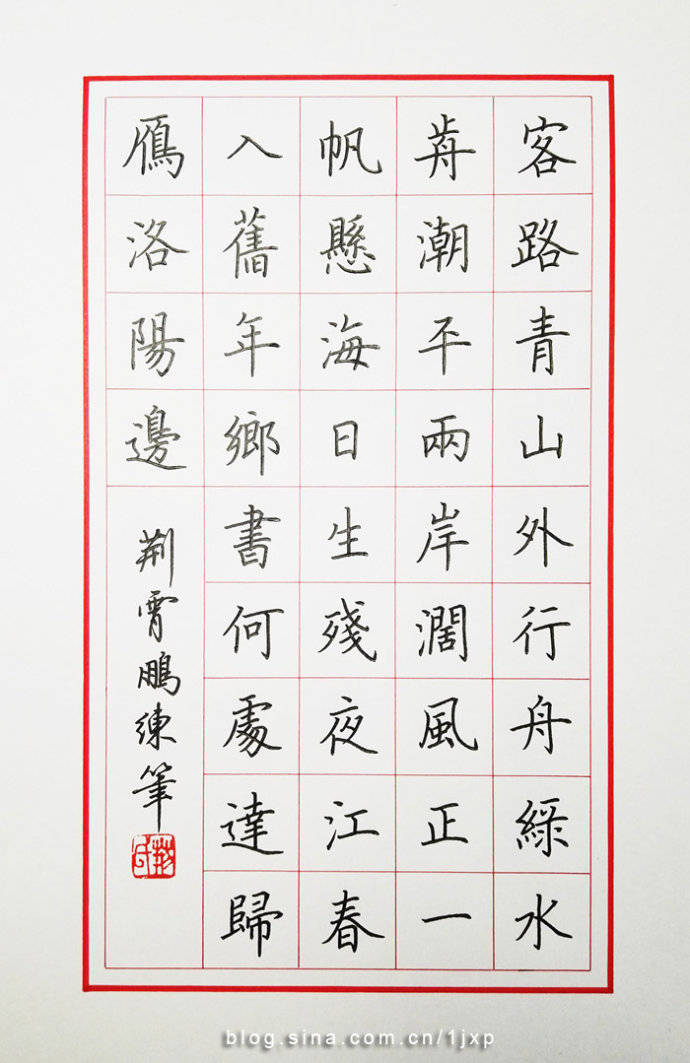 客路青山外行舟綠水
歬潮平兩岸濶風正一
帆懸海日生殘夜江春
入舊年鄉書何處達歸
鴈洛陽邊
荊霄鵬練筆
blog.sina.com.cn/1jxp